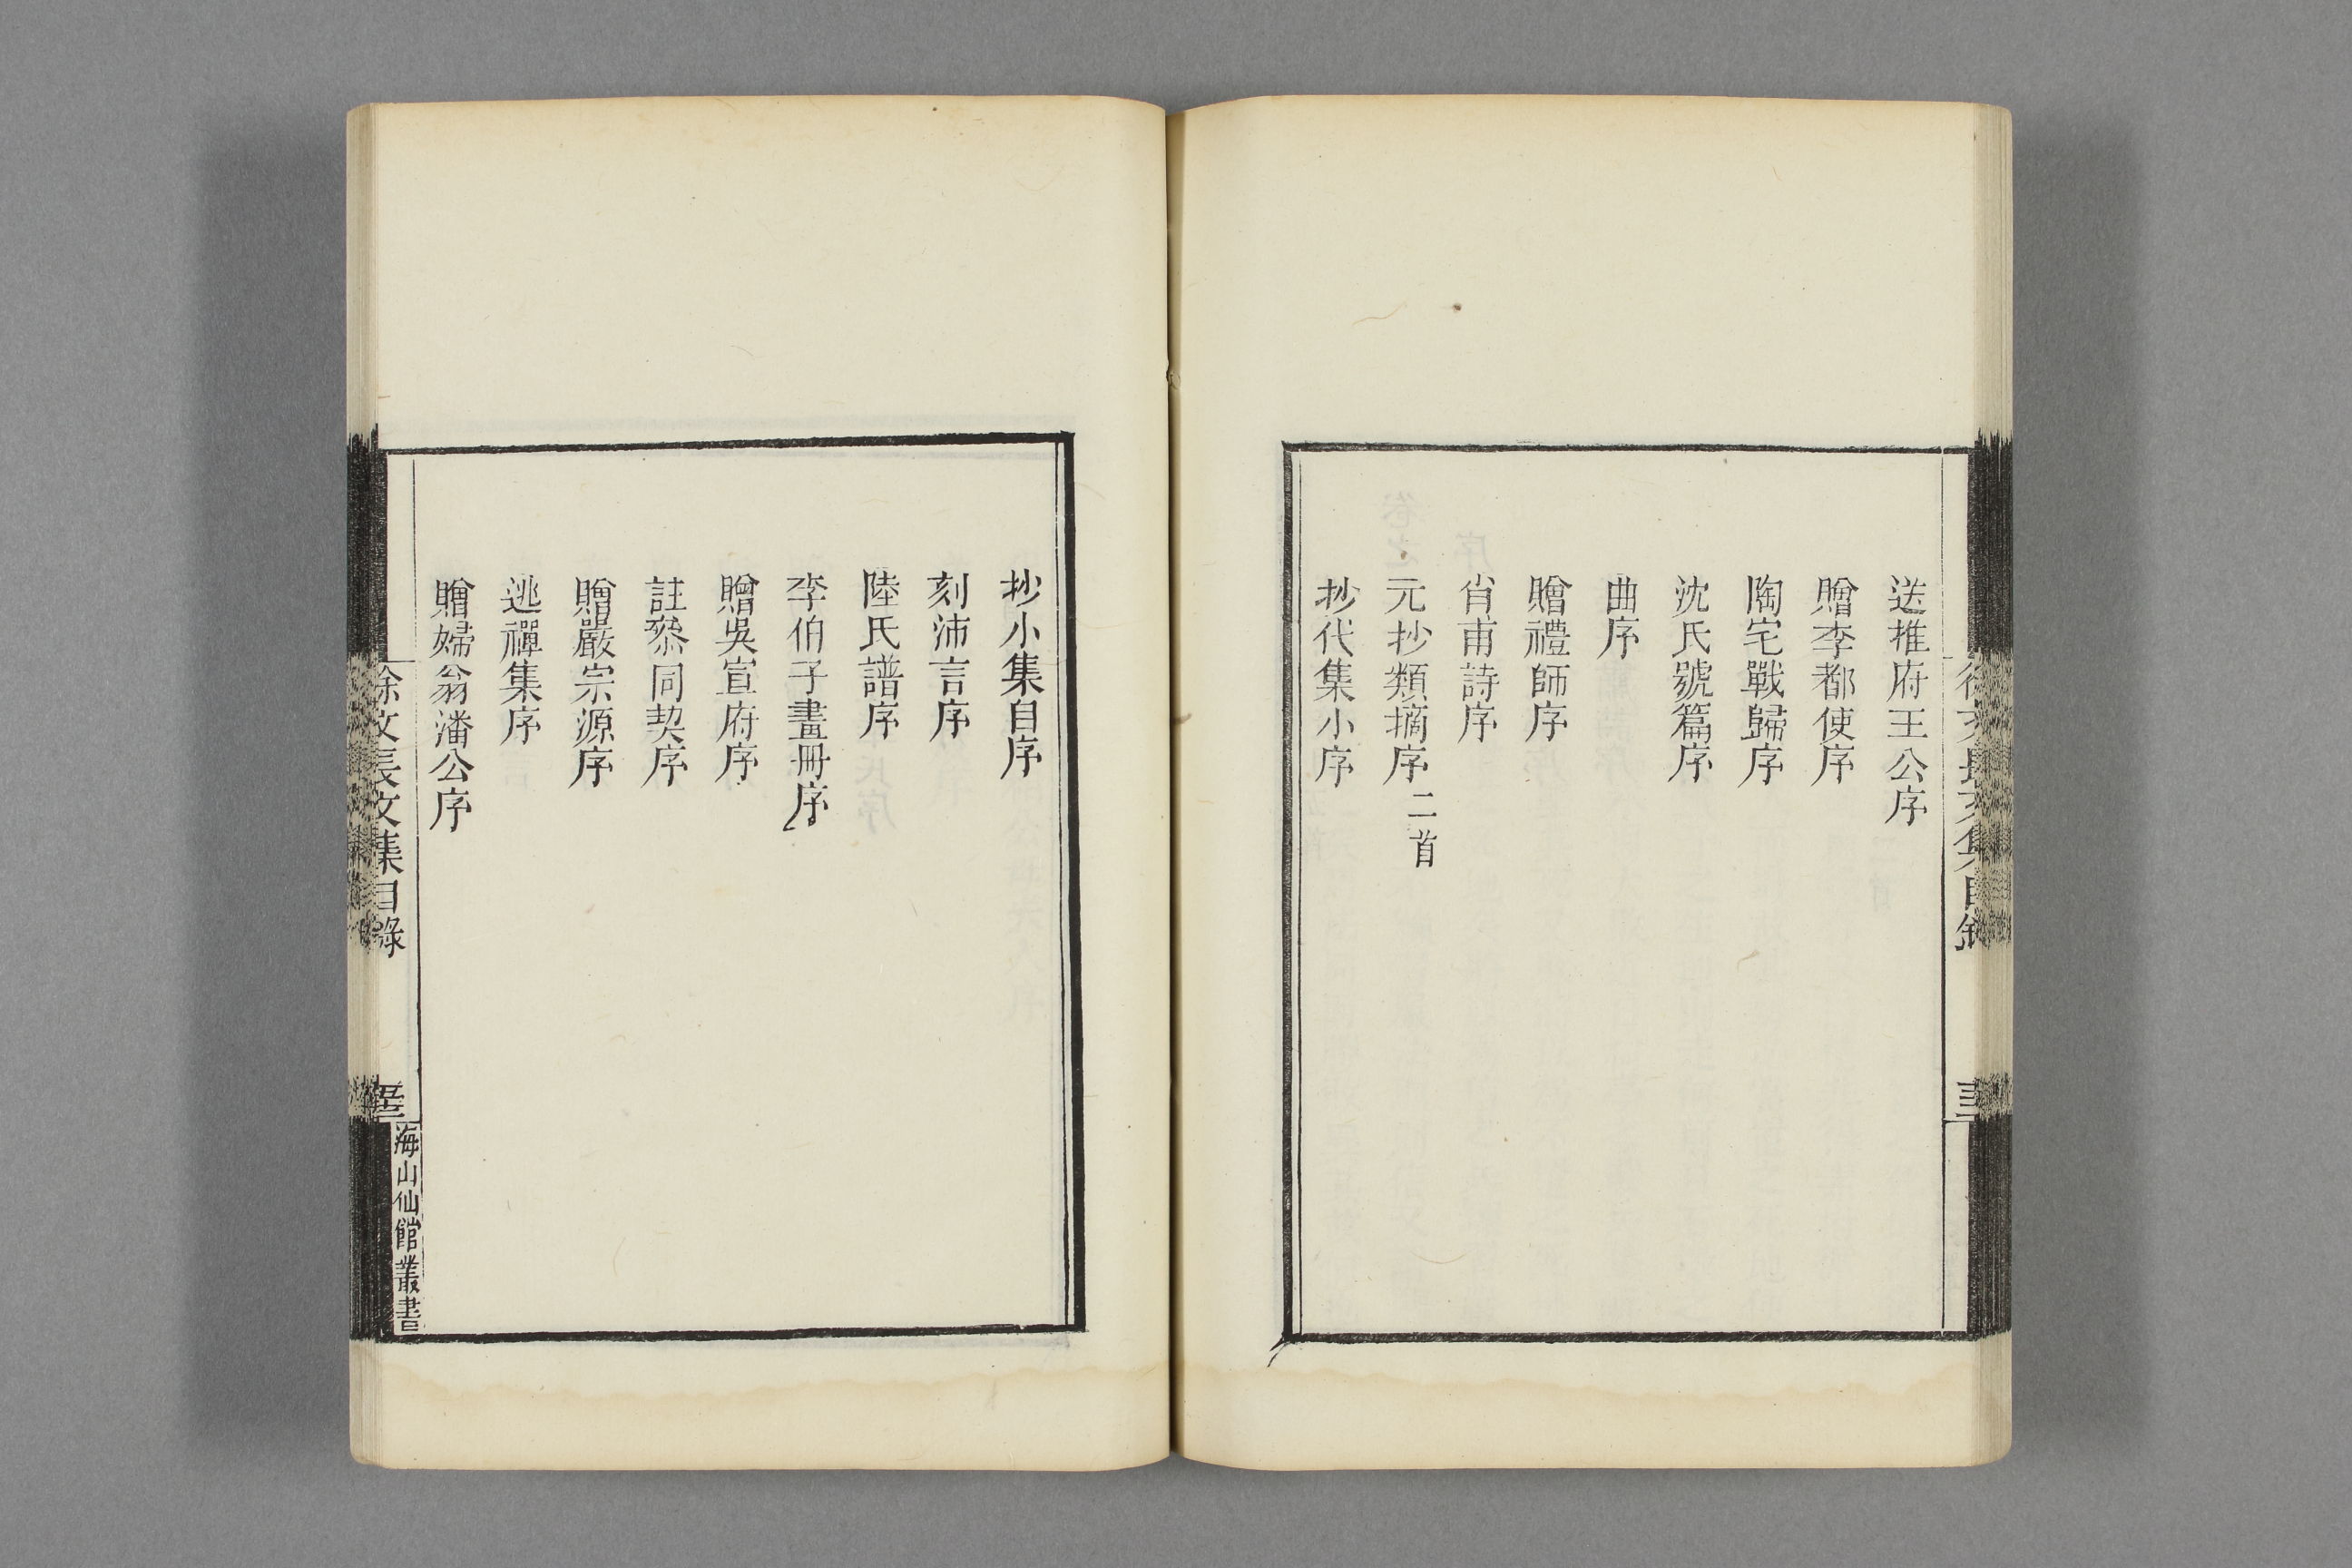 送推府王公序
贈李都使序
陶宅戰歸序
沈氏號篇序
曲序
贈禮師序
肖甫詩序
元抄類摘序二首
抄代集小序
抄小集自序
刻沛言序
陸氏譜序
李伯子畫冊序
贈吳宣府序
註叅同契序
贈嚴宗源序
逃禪集序
贈婦翁潘公序
徐文長文集目錄
海山仙館叢書